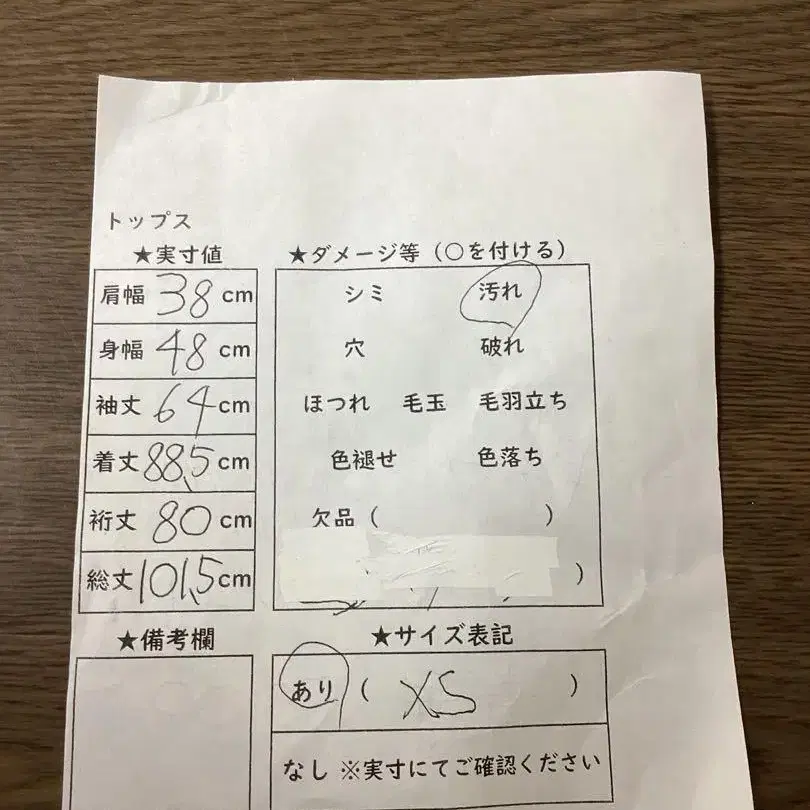 トップス
★実寸値
肩幅 38 cm
身幅 48 cm
袖丈 64 cm
着丈 88.5 cm
裄丈 80 cm
総丈 101.5 cm
★ダメージ等（○を付ける）
シミ 汚れ
穴 破れ
ほつれ 毛玉 毛羽立ち
色褪せ 色落ち
欠品（ ）
）
★備考欄
★サイズ表記
あり（ XS ）
なし ※実寸にてご確認ください